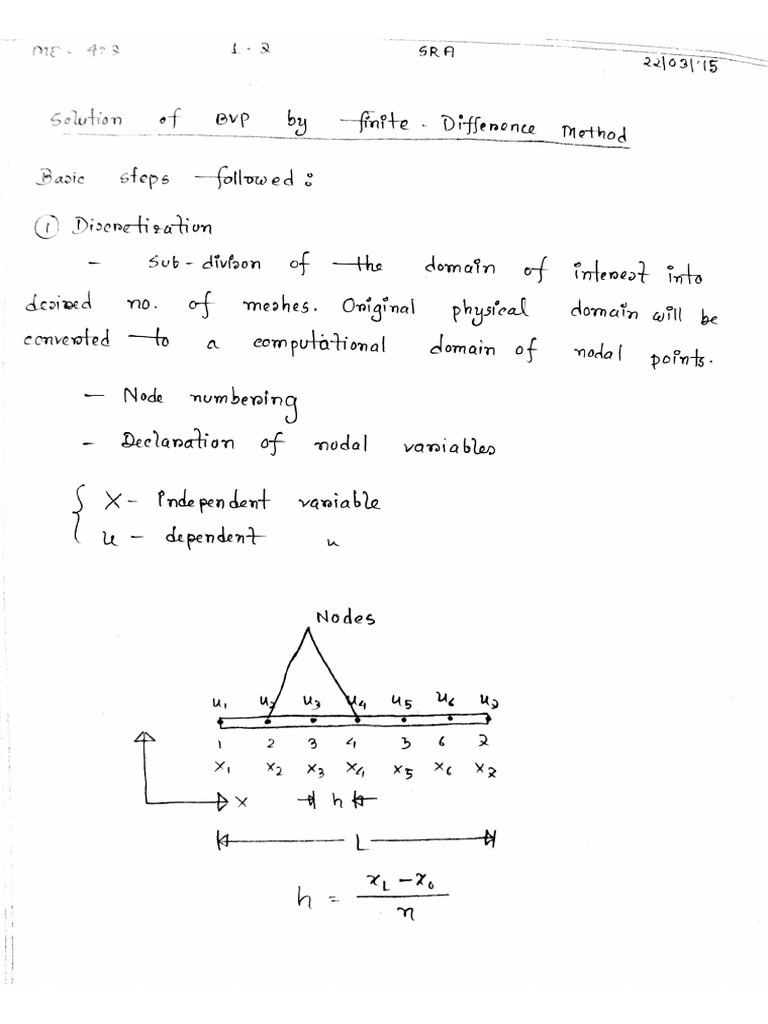 ME - 473 1 - 2 SRA
22/03/'15
Solution of BVP by finite - Difference Method
Basic steps followed :
① Discretization
- Sub-divison of the domain of interest into
desired no. of meshes. Original physical domain will be
converted to a computational domain of nodal points.
- Node numbering
- Declaration of nodal variables
{ X - Independent variable
u - dependent "
Nodes
u₁ u₂ u₃ u₄ u₅ u₆ u₇
1 2 3 4 5 6 7
x₁ x₂ x₃ x₄ x₅ x₆ x₇
X h
L
h = (x_L - x_0) / n